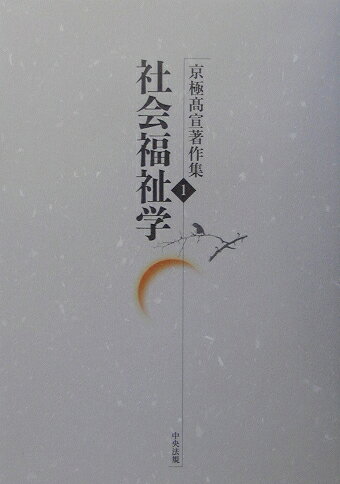 京極髙宣著作集
1
社会福祉学
中央法規